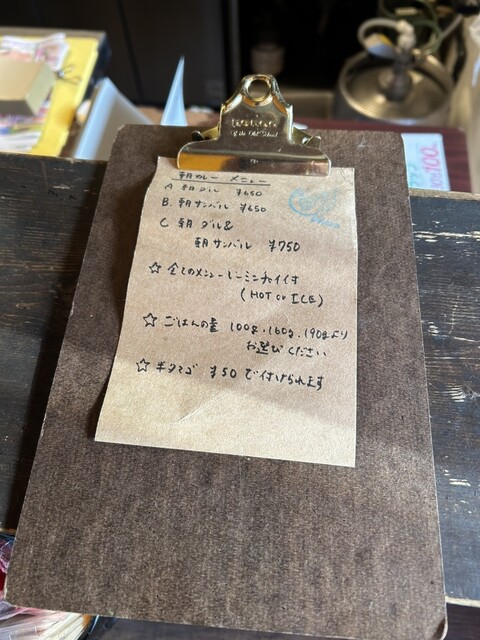 朝カレー メニュー
A 朝ダル ¥650
B. 朝サンバル ¥650
C 朝 ダル&
朝サンバル ¥750
☆ 全てのメニューにミニチャイ付
(HOT or ICE)
☆ ごはんの量 100g、160g、190gより
お選びください
☆ 半タマゴ ¥50 で付けられます
100